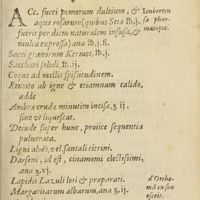 ACc. succi pomorum dulcium, &
aquæ rosarum (quibus Seta ℔.j.
fuerit per diem naturalem infusa, &
multa expressa) ana ℔.j.ß.
Succi granorum Kermes, ℔.j.
Sacchari soluti, ℔.ij.
Coque ad mellis spissitudinem.
Remoto ab igne & etiamnum calido,
adde
Ambræ crudæ minutim incisæ, ʒ.ij.
sine vt liquescat.
Deinde super hunc, proiice sequentia
puluerata,
Ligni aloës, vel santali citrini.
Darseni, id est, cinamomi electissimi,
ana ʒ.vj.
Lapidis Lazuli loti & præparati.
Margaritarum albarum, ana ʒ.ij.
Iauberten
sa phar-
macopee.
d'Ortho-
mã en son
escrit.